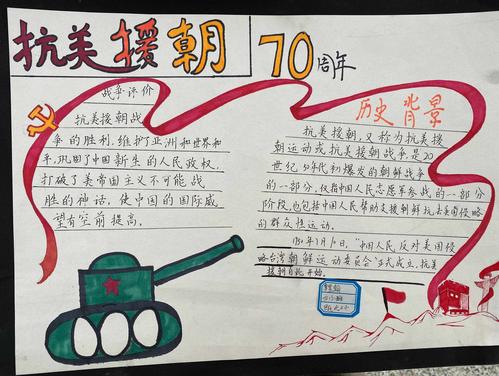 抗美援朝 70周年
战争评价
抗美援朝战
争的胜利,维护了亚洲和世界和
平,巩固了中国新生的人民政权,
打破了美帝国主义不可能战
胜的神话,使中国的国际威
望有空前提高。
历史背景
抗美援朝,又称为抗美援
朝运动或抗美援朝战争,是20
世纪50年代初爆发的朝鲜战争
的一部分,仅指中国人民志愿军参战的一部分
阶段,也包括中国人民帮助支援朝鲜抗击美国侵略
的群众性运动。
1950年7月10日,"中国人民反对美国侵
略台湾朝鲜运动委员会"正式成立,抗美
援朝自此开始。